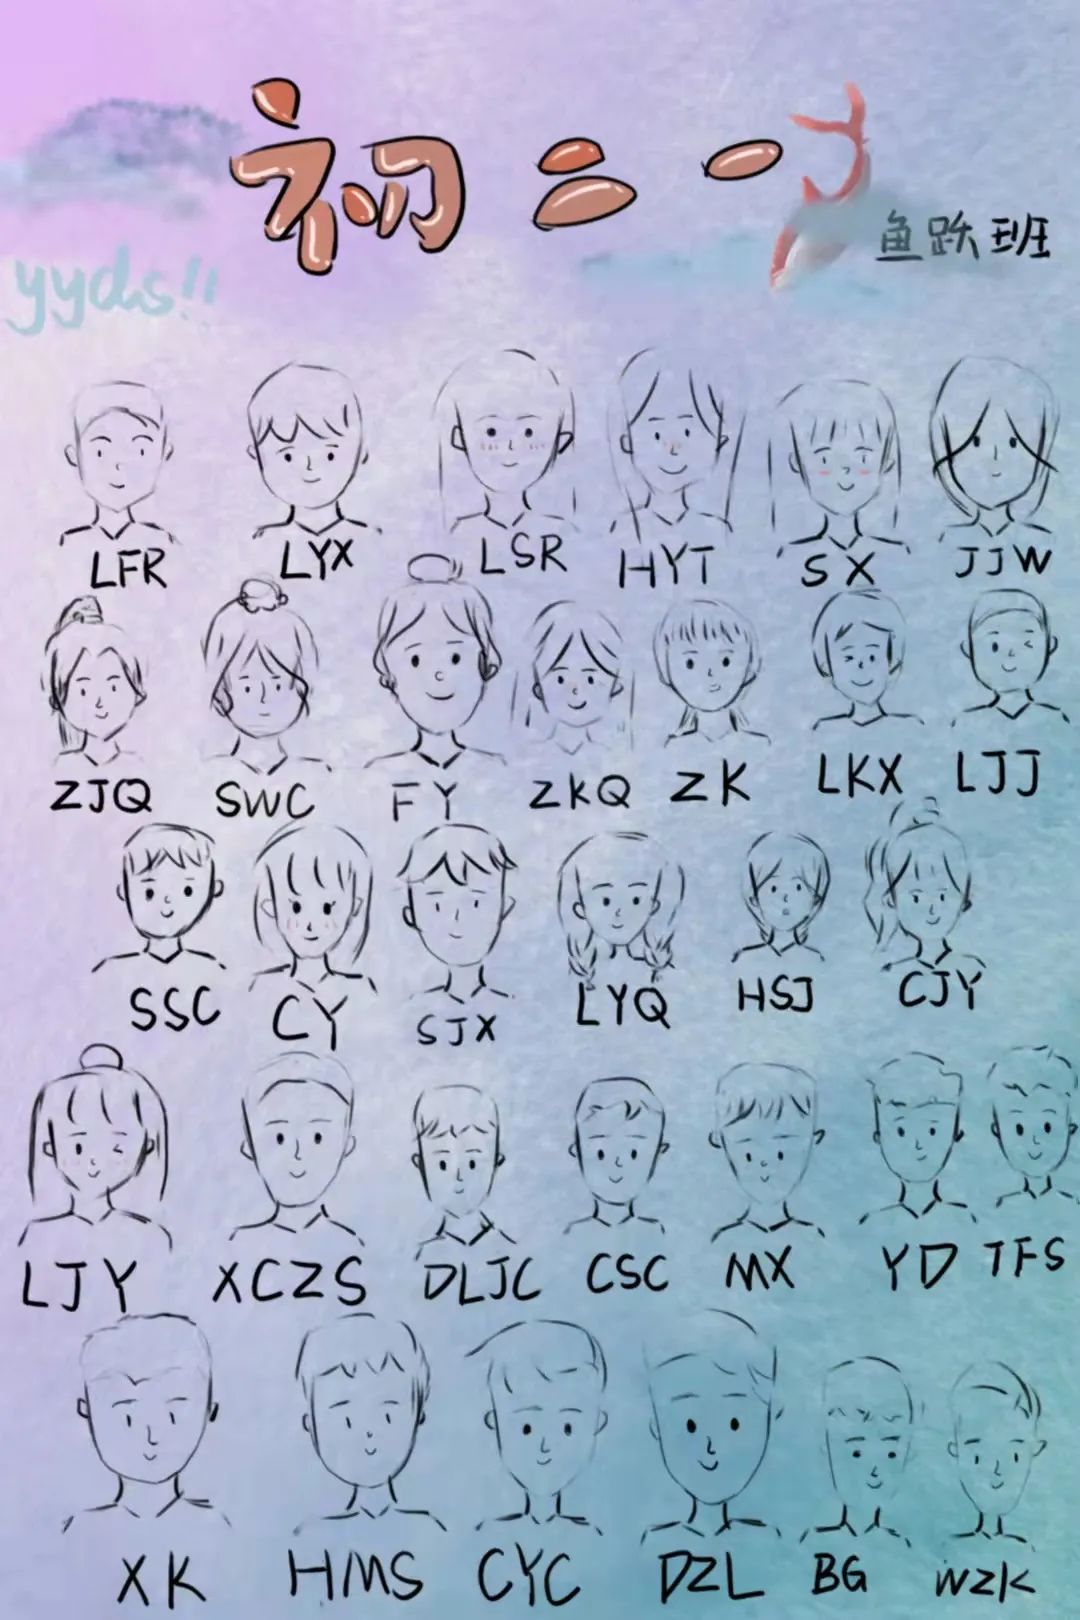 初二一
鱼跃班
yyds!!
LFR LYX LSR HYT SX JJW
ZJQ SWC FY ZKQ ZK LKX LJJ
SSC CY SJX LYQ HSJ CJY
LJY XCZS DLJC CSC MX YD TFS
XK HMS CYC DZL BG WZK